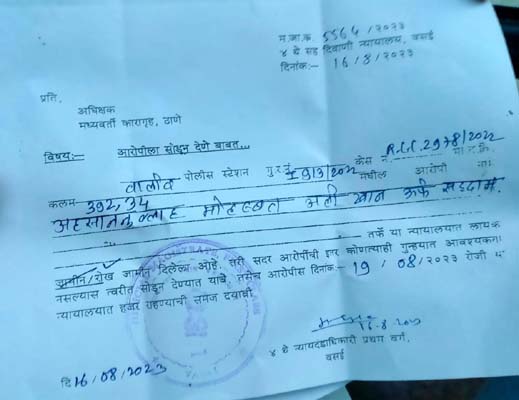 म.जा.क्र. 5564/२०२३
४ थे सह दिवाणी न्यायालय, वसई
दिनांक:- 16/8/२०२३
प्रति,
अधिक्षक
मध्यवर्ती कारागृह, ठाणे
विषय:- आरोपीला सोडून देणे बाबत...
वालीव पोलीस स्टेशन गु.र.नं. I 913/२०२२ केस नं. R.C.C. 2978/2022
कलम 392, 34 मधील आरोपी नामे
अहसानकुल्लाह मोहब्बत अली खान उर्फ सद्दाम
तर्फे या न्यायालयात लायक
जामीन/रोख जामीन दिलेला आहे. तरी सदर आरोपीची इतर कोणत्याही गुन्हयात आवश्यकता
नसल्यास त्वरीत सोडून देण्यात यावे. तसेच आरोपीस दिनांक:- 19/08/२०२३ रोजी या
न्यायालयात हजर राहण्याची समज दयावी.
16-8-2023
४ थे न्यायदंडाधिकारी प्रथम वर्ग,
वसई
दि 16/08/2023